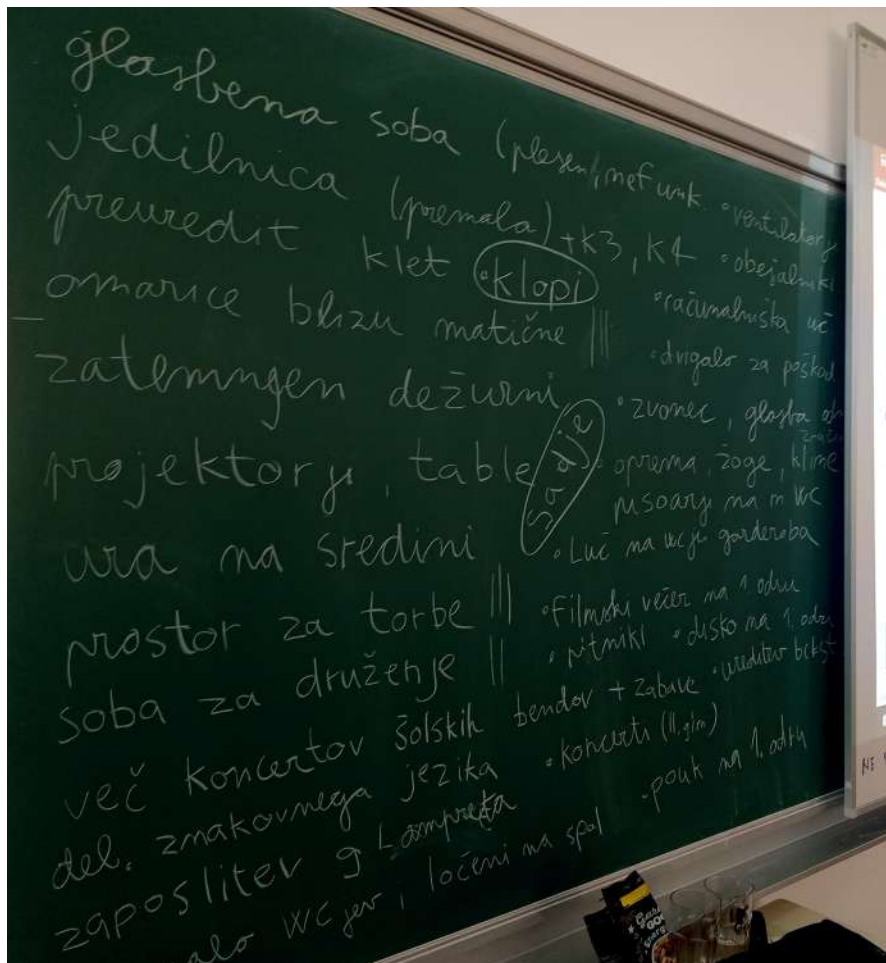 glasbena soba (plesen, nefunk.
jedilnica (premala) + k3, k4
preuredit klet
•klopi
omarice blizu matične |||
zatemnjen dežurni
projektorji, table
sadje
ura na sredini
prostor za torbe |||
soba za druženje ||
več koncertov šolskih bendov + zabave
del. znakovnega jezika
zaposlitev g Lampreta
WCjev, ločeni na spol
•ventilatorji
•obešalniki
•računalniška uč
•dvigalo za poškod
•zvonec, glasba
•oprema, žoge, klime
pisoarji na m WC
•Luč na wcju garderoba
•Filmski večer na 1 odru
•pitniki •disko na 1. odru
•ureditev
•koncerti (II. gim)
•pouk na 1. odru
NE